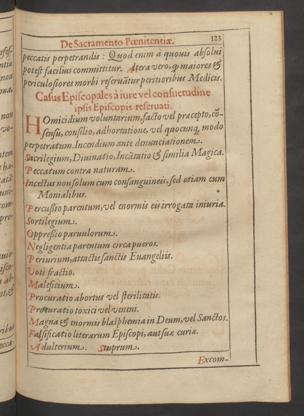 De Sacramento Pœnitentiæ. 123
peccatis perpetrandis : Quod enim a quouis absolui
potest facilius committitur. Atera vero, q̃ maiores &
periculosiores morbi reseruãtur peritioribus Medicis.
Casus Episcopales à iure vel consuetudine
ipsis Episcopis reseruati.
Homicidium voluntarium, facto vel præcepto, cõ-
sensu, consilio, adhortatione, vel quocunq, modo
perpetratum. Incendium ante denunciationem.
Sacrilegium, Diuinatio, Incãtatio & similia Magica.
Peccatum contra naturam.
Incestus non solum cum consanguineis, sed etiam cum
Monialibus.
Percussio parentum, vel enormis eis irrogata iniuria.
Sortilegium.
Oppressio paruulorum.
Negligentia parentum circa pueros.
Periurium, attactus sanctis Euangeliis.
Voti fractio.
Maleficium.
Procuratio abortus vel sterilitatis.
Procuratio toxici vel veneni.
Magna & enormis blasphemia in Deum, vel Sanctos.
Falsificatio literarum Episcopi, aut suæ curiæ.
Adulterium. Stuprum.
Excom-